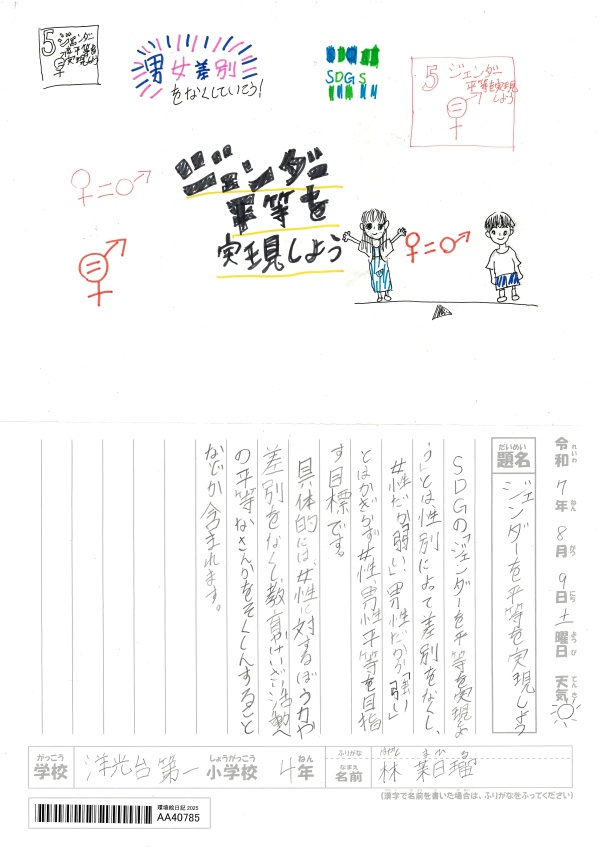 5 ジェンダー
平等を
実現しよう
男女差別
をなくしていこう!
SDGs
5 ジェンダー
平等を実現
しよう
ジェンダー
平等を
実現しよう
令和7年8月9日土曜日 天気
れいわ ねん がつ にち ようび てんき
だいめい
題名
ジェンダーを平等を実現しよう
SDGの「ジェンダーを平等を実現よ
う」とは性別によって差別をなくし、
女性だから「弱い」男性だから「強い」
とはかぎらず女性男性平等を目指
す目標です。
具体的には、女性に対するぼう力や
差別をなくし、教育、けいざい活動へ
の平等なさんかをそくしんすること
などが含まれます。
がっこう しょうがっこう ねん ふりがな
学校 洋光台第一小学校 4年
なまえ
名前 林
(漢字で名前を書いた場合は、ふりがなをふってください)
環境絵日記 2025
AA40785